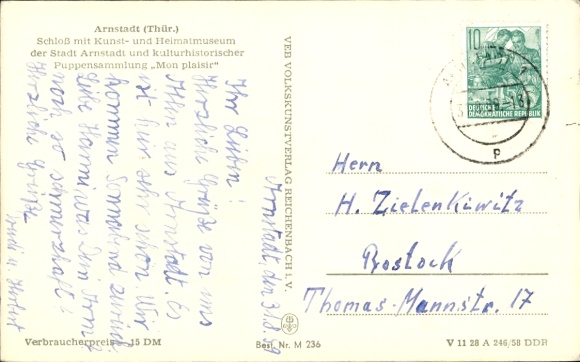 Arnstadt (Thür.)
Schloß mit Kunst- und Heimatmuseum
der Stadt Arnstadt und kulturhistorischer
Puppensammlung „Mon plaisir“
Arnstadt den 31.8.59
Ihr Lieben!
Herzliche Grüße von uns
Allen aus Arnstadt. Es
ist hier sehr schön. Wir
kommen Sonnabend zurück.
Liebe Hanni was Dein Arm?
noch so schmerzhaft?
Herzliche Grüße
VEB VOLKSKUNSTVERLAG REICHENBACH i. V.
10
DEUTSCHE
DEMOKRATISCHE REPUBLIK
P
Herrn
H. Zielenkiwitz
Rostock
Thomas-Mannstr. 17
Verbraucherpreis -,15 DM
Best. Nr. M 236
V 11 28 A 246/58 DDR